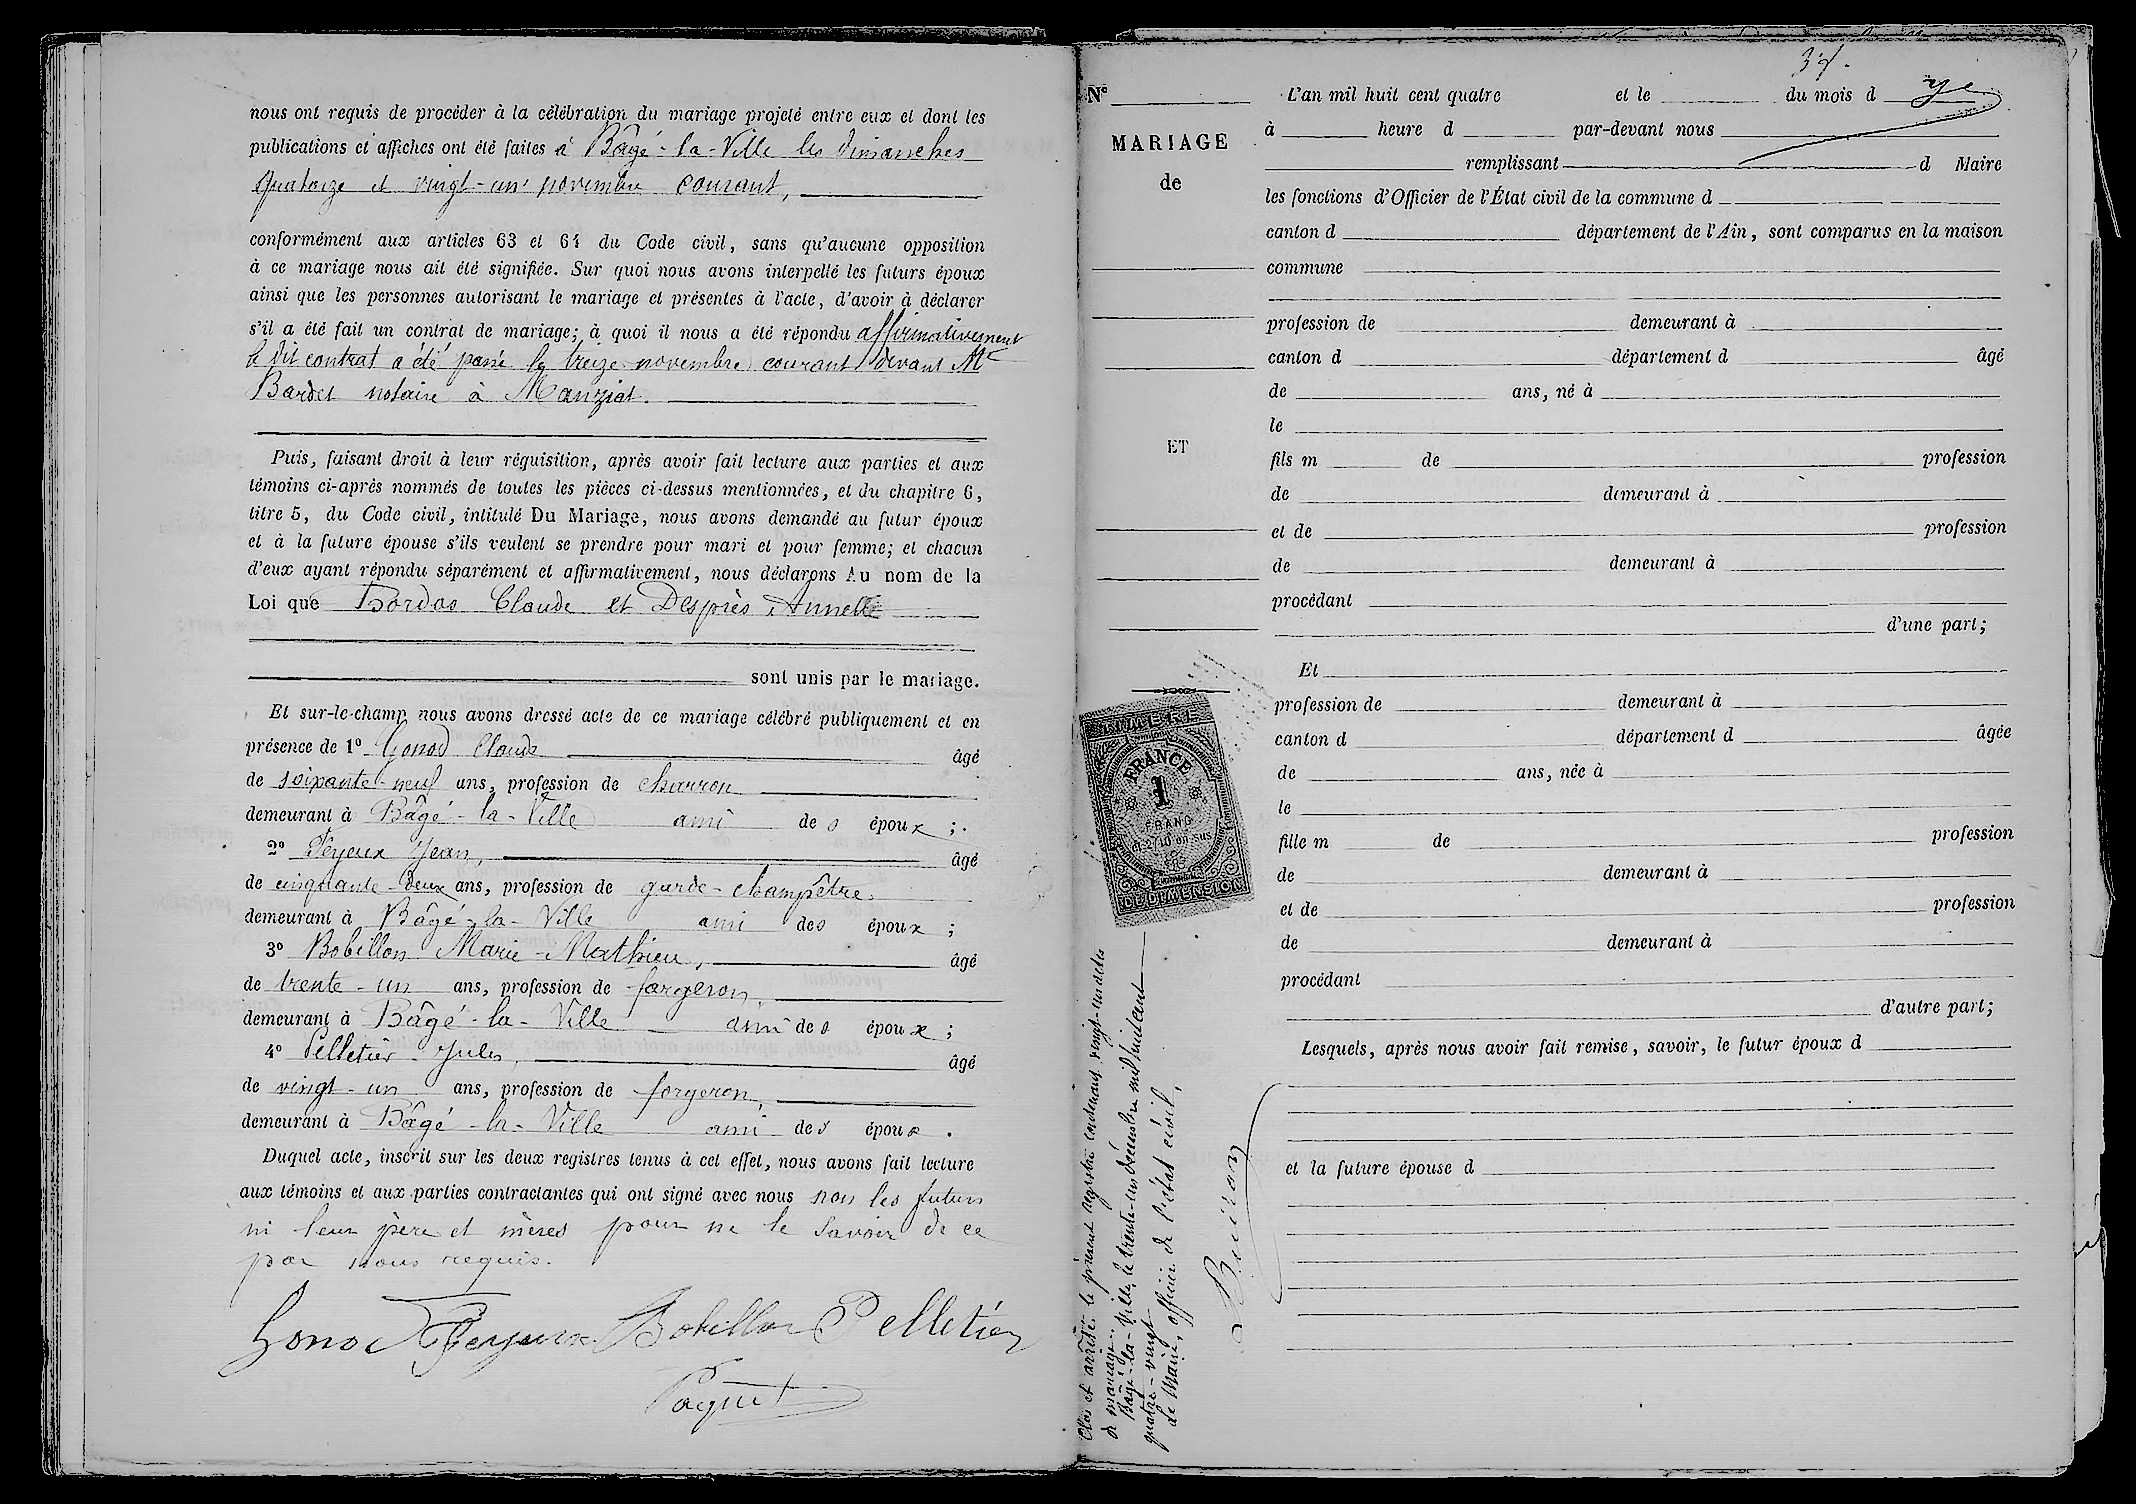 nous ont requis de procéder à la célébration du mariage projeté entre eux et dont les
publications et affiches ont été faites à Bâgé-la-Ville les dimanches
quatorze et vingt-un novembre courant,
conformément aux articles 63 et 64 du Code civil, sans qu'aucune opposition
à ce mariage nous ait été signifiée. Sur quoi nous avons interpellé les futurs époux
ainsi que les personnes autorisant le mariage et présentes à l'acte, d'avoir à déclarer
s'il a été fait un contrat de mariage; à quoi il nous a été répondu affirmativement
le dit contrat a été passé le treize novembre courant devant Me
Bardet notaire à Manziat.
Puis, faisant droit à leur réquisition, après avoir fait lecture aux parties et aux
témoins ci-après nommés de toutes les pièces ci-dessus mentionnées, et du chapitre 6,
titre 5, du Code civil, intitulé Du Mariage, nous avons demandé au futur époux
et à la future épouse s'ils veulent se prendre pour mari et pour femme; et chacun
d'eux ayant répondu séparément et affirmativement, nous déclarons Au nom de la
Loi que Bordas Claude et Desprès Annette
sont unis par le mariage.
Et sur-le-champ nous avons dressé acte de ce mariage célébré publiquement et en
présence de 1o Gonod Claude âgé
de soixante-neuf ans, profession de charron
demeurant à Bâgé-la-Ville ami des époux ;
2o Feyeux Jean, âgé
de cinquante-deux ans, profession de garde-champêtre
demeurant à Bâgé-la-Ville ami des époux ;
3o Bobillon Marie-Mathieu, âgé
de trente-un ans, profession de forgeron,
demeurant à Bâgé-la-Ville ami des époux ;
4o Pelletier Jules, âgé
de vingt-un ans, profession de forgeron,
demeurant à Bâgé-la-Ville ami des époux .
Duquel acte, inscrit sur les deux registres tenus à cet effet, nous avons fait lecture
aux témoins et aux parties contractantes qui ont signé avec nous non les futurs
ni leur père et mères pour ne le savoir de ce
par nous requis.
Gonod Feyeux Bobillon Pelletier
Paquet
37.
No
MARIAGE
de
ET
L'an mil huit cent quatre et le du mois d
à heure d par-devant nous
remplissant d Maire
les fonctions d'Officier de l'État civil de la commune d
canton d département de l'Ain, sont comparus en la maison
commune
profession de demeurant à
canton d département d âgé
de ans, né à
le
fils m de profession
de demeurant à
et de profession
de demeurant à
procédant
d'une part;
Et
profession de demeurant à
canton d département d âgée
de ans, née à
le
fille m de profession
de demeurant à
et de profession
de demeurant à
procédant
d'autre part;
Lesquels, après nous avoir fait remise, savoir, le futur époux d
et la future épouse d
TIMBRE
FRANCE
1
FRANC
2/10 en sus
DE DIMENSION
Clos et arrêté le présent registre contenant vingt-un actes
de mariage.
Bâgé-la-Ville, le trente-un décembre mil huit cent
quatre-vingt
Le Maire, officier de l'état civil,